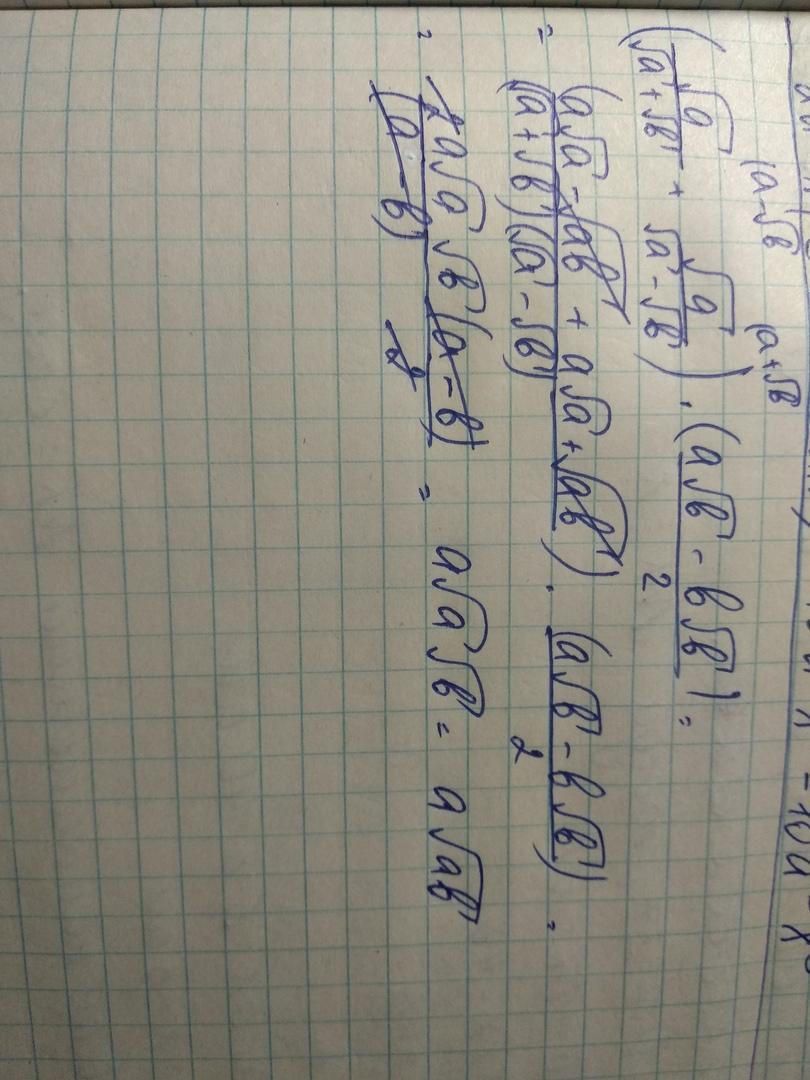 (√a/(√a+√b) + √a/(√a-√b)) · (a√b - b√b)/2 =
(a-√b (a+√b
= (a√a - √ab + a√a + √ab)/((√a+√b)(√a-√b)) · (a√b - b√b)/2 =
= 2a√a√b(a-b)/((a-b) 2) = a√a√b = a√ab